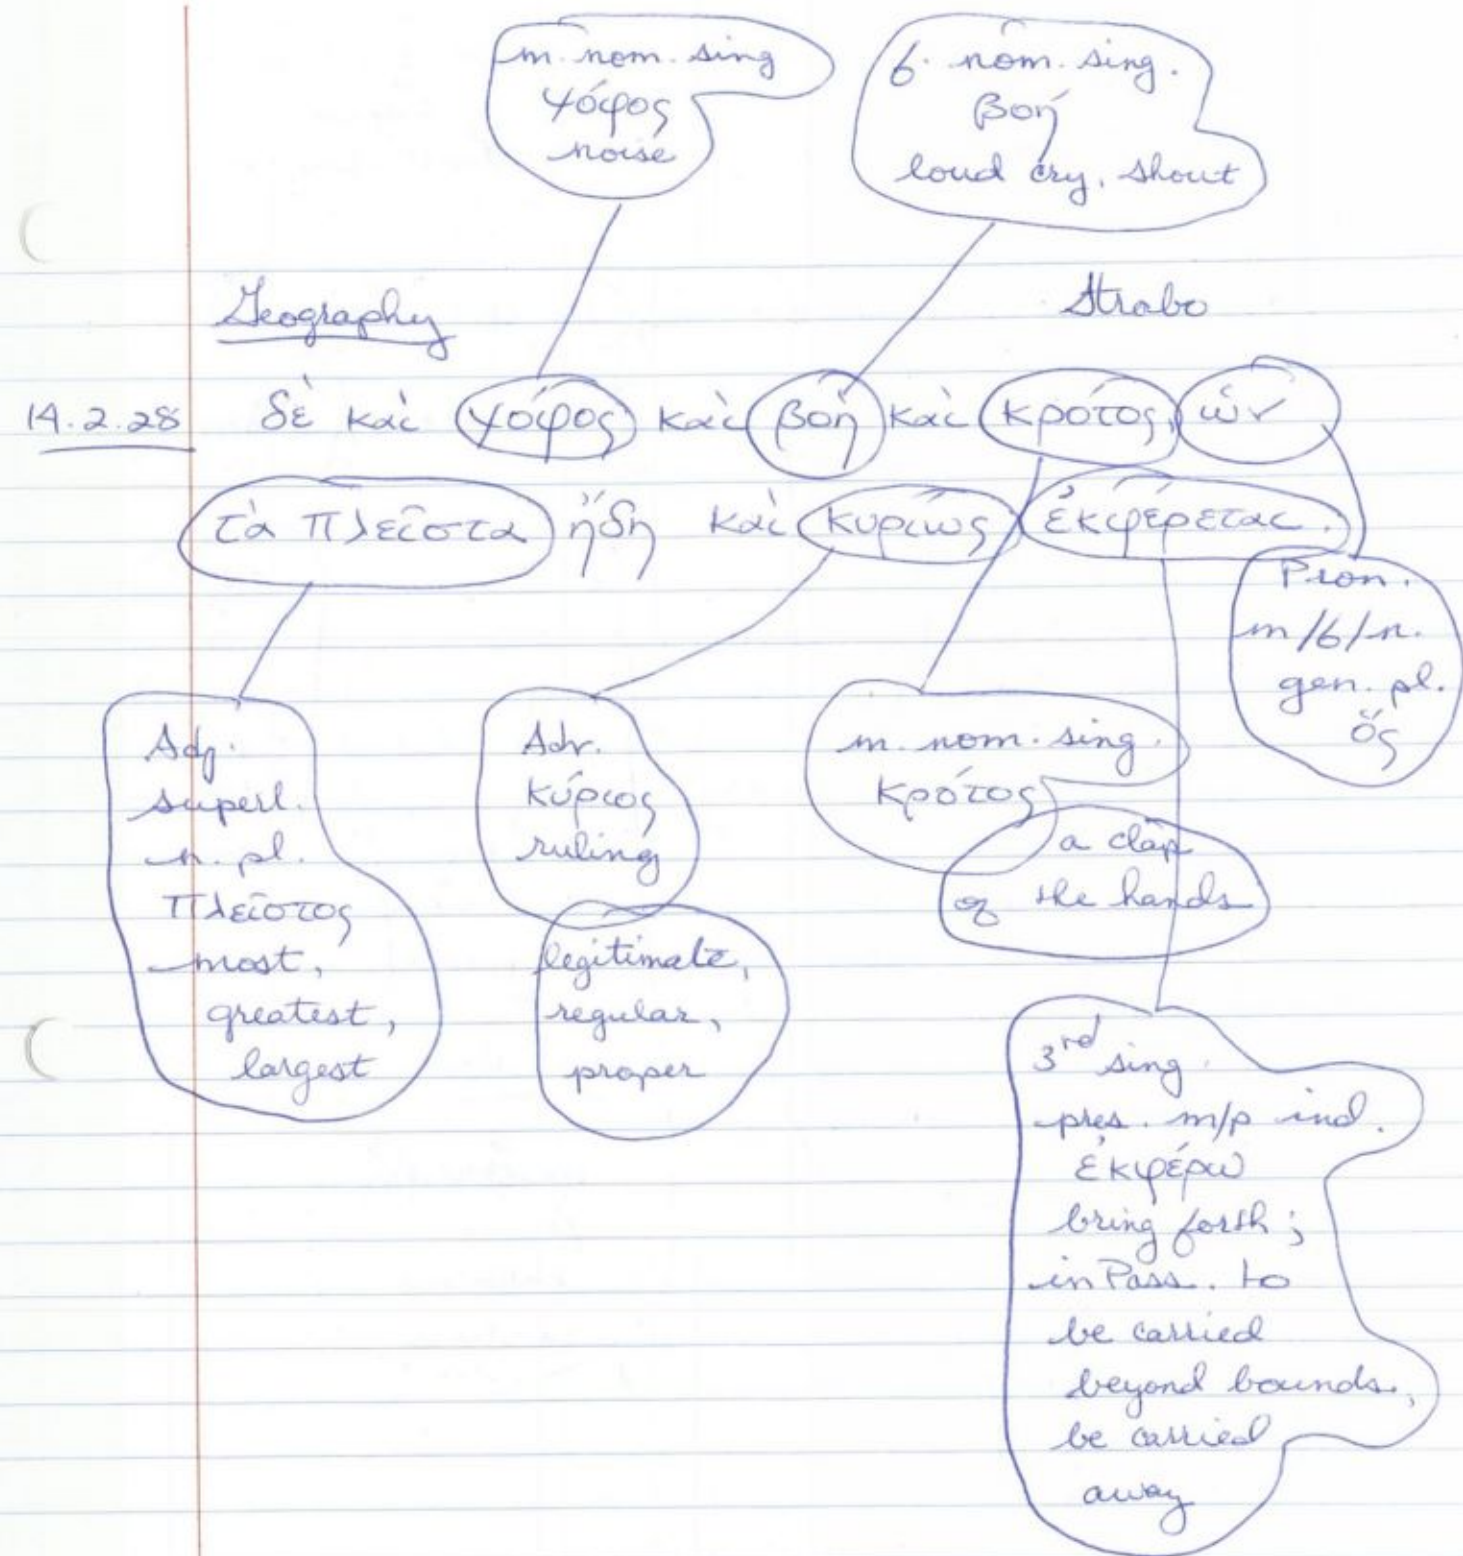 m. nom. sing
ψόφος
noise
f. nom. sing.
βοή
loud cry, shout
Geography
Strabo
14.2.28 δὲ καὶ ψόφος καὶ βοὴ καὶ κρότος, ὧν
τὰ πλεῖστα ἤδη καὶ κυρίως ἐκφέρεται.
Pron.
m/f/n.
gen. pl.
ὅς
Adj.
superl.
n. pl.
πλεῖστος
most,
greatest,
largest
Adv.
κύριος
ruling
legitimate,
regular,
proper
m. nom. sing.
κρότος
a clap
of the hands
3rd sing.
pres. m/p ind.
ἐκφέρω
bring forth;
in Pass. to
be carried
beyond bounds,
be carried
away